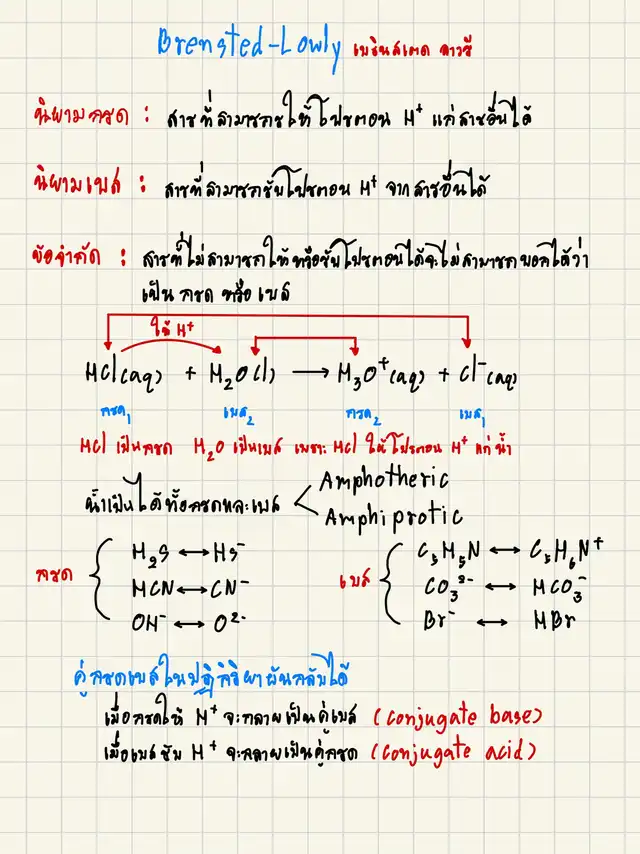 Brensted-Lowly เบรินสเตด ลาวรี
นิยามกรด : สารที่สามารถให้โปรตอน H⁺ แก่สารอื่นได้
นิยามเบส : สารที่สามารถรับโปรตอน H⁺ จากสารอื่นได้
ข้อจำกัด : สารที่ไม่สามารถให้หรือรับโปรตอนได้จะไม่สามารถบอกได้ว่า
เป็น กรด หรือ เบส
ให้ H⁺
HCl(aq) + H₂O(l) → H₃O⁺(aq) + Cl⁻(aq)
กรด₁ เบส₂ กรด₂ เบส₁
HCl เป็นกรด H₂O เป็นเบส เพราะ HCl ให้โปรตอน H⁺ แก่ น้ำ
น้ำเป็นได้ทั้งกรดและเบส
Amphotheric
Amphiprotic
กรด
H₂S ↔ HS⁻
HCN ↔ CN⁻
OH⁻ ↔ O²⁻
เบส
C₅H₅N ↔ C₅H₆N⁺
CO₃²⁻ ↔ HCO₃⁻
Br⁻ ↔ HBr
คู่กรดเบสในปฏิกิริยาผันกลับได้
เมื่อกรดให้ H⁺ จะกลายเป็นคู่เบส (conjugate base)
เมื่อเบสรับ H⁺ จะกลายเป็นคู่กรด (conjugate acid)